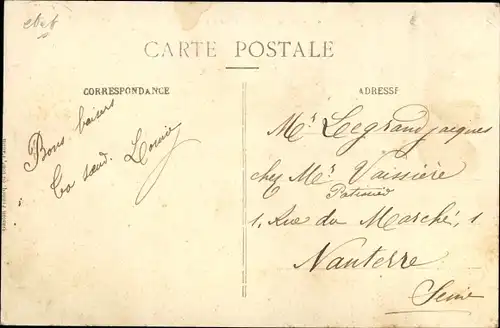 CARTE POSTALE
CORRESPONDANCE
Bons baisers
Ta sœur. Louise
ADRESSE
Mr Legrand Jacques
chez Mr Vaissière
1, Rue du Marché, 1
Nanterre
Seine